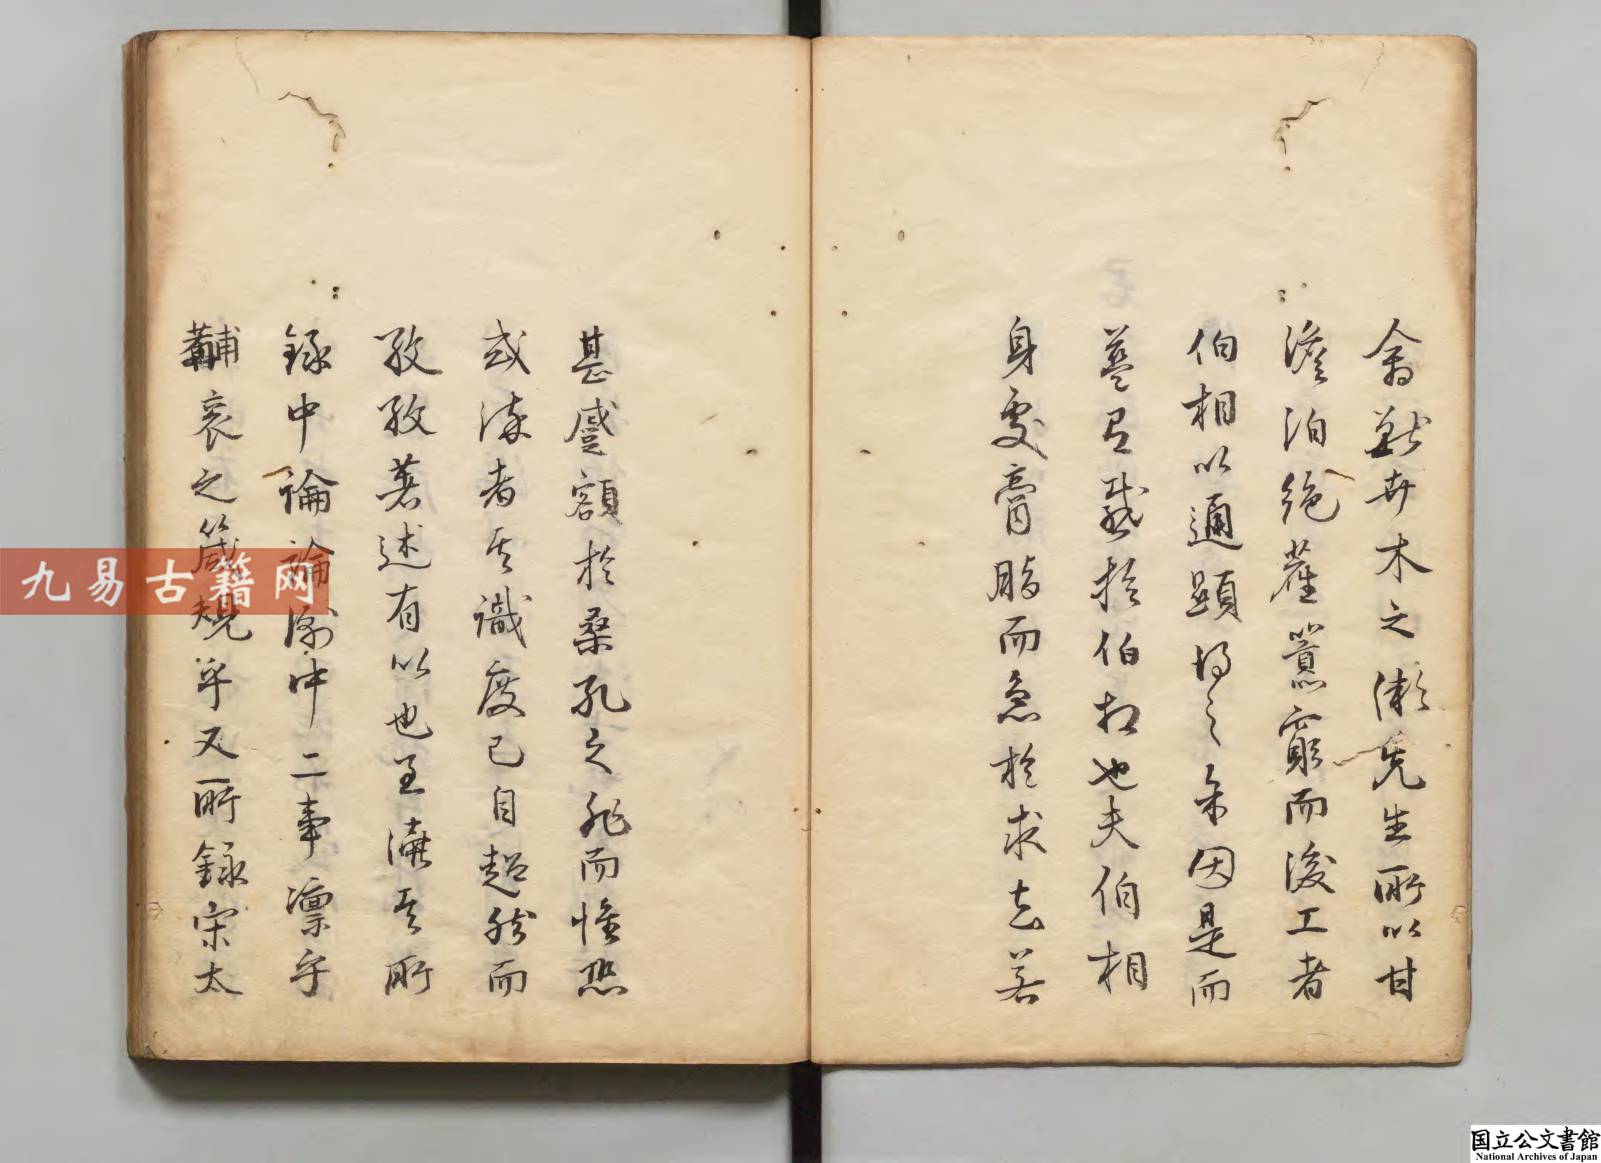 禽獸卉木之瀨先生所以甘
澹泊絶 窮而後工者
伯相以通顯得之余因是而
蓋有感於伯相也夫伯相
身處膏脂而急於求去若
甚蹙額於桑孔之兆而惟恐
或浼者其識度已自超然而
孜孜著述有以也至 其所
錄中論論 中二事凛乎
黼衮之箴規乎又所錄宋太
九易古籍网
国立公文書館
National Archives of Japan